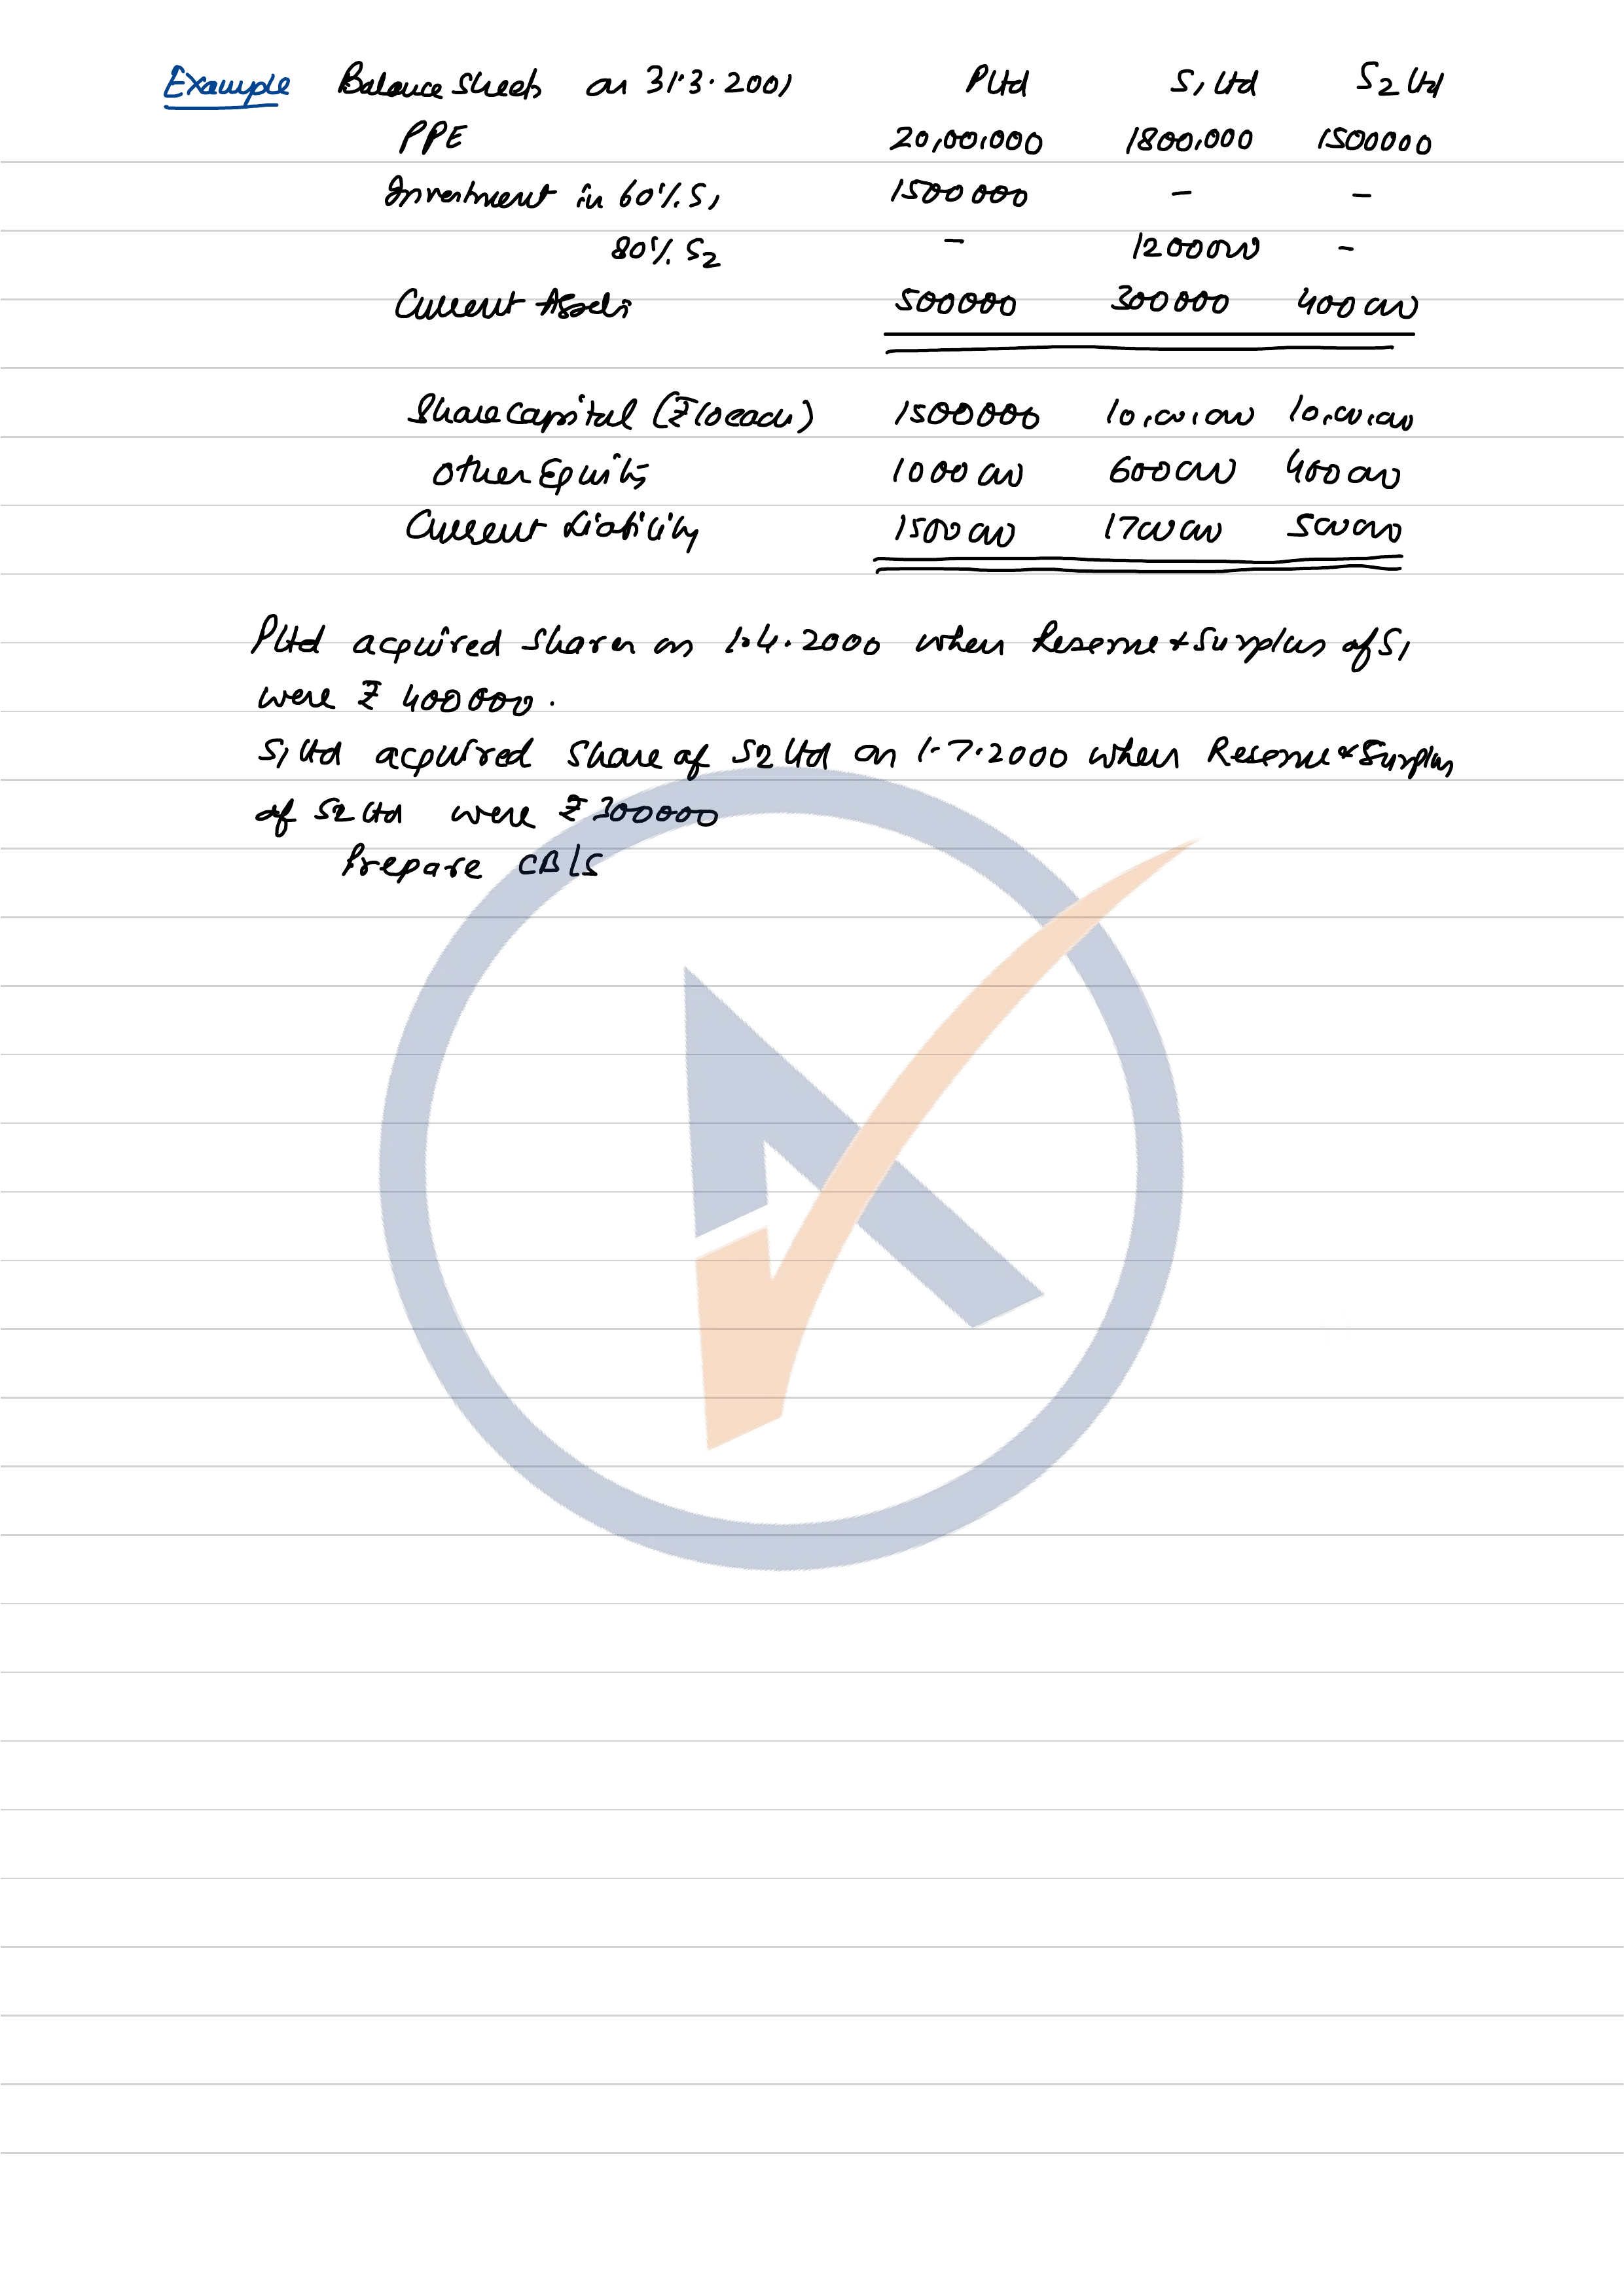 Example Balance Sheets as 31.3.2001 P Ltd S1 Ltd S2 Ltd
PPE 20,00,000 1800,000 1500000
Investment in 60% S1 1500000 - -
80% S2 - 1200000 -
Current Assets 500000 300000 400000
Share Capital (₹10 each) 1500000 10,00,000 10,00,000
Other Equity 1000000 600000 400000
Current Liability 1500000 1700000 500000
P Ltd acquired shares on 1.4.2000 when Reserve & Surplus of S1
were ₹ 400000.
S1 Ltd acquired Share of S2 Ltd on 1.7.2000 when Reserve & Surplus
of S2 Ltd were ₹ 300000
Prepare CB/S